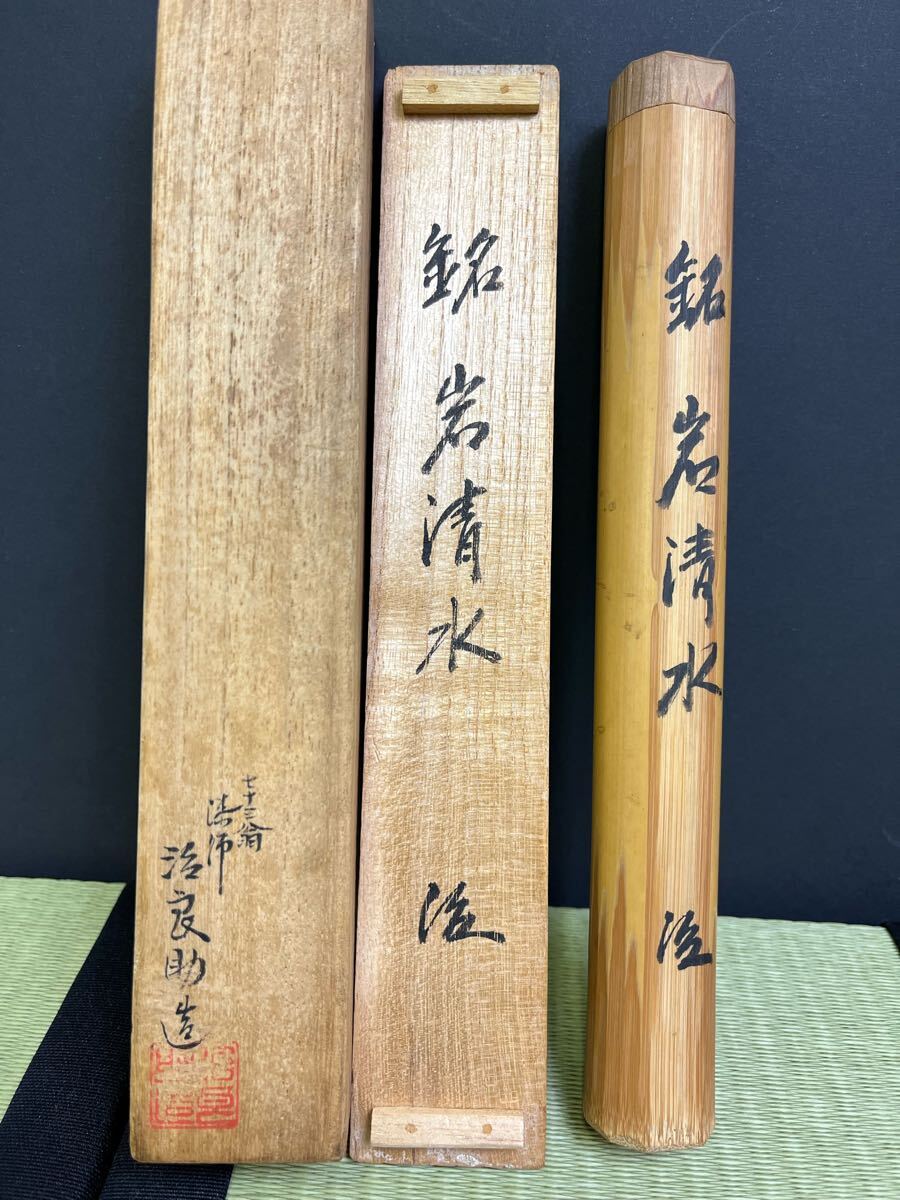 七十三翁
漆師
治良助造
銘 岩清水
銘 岩清水